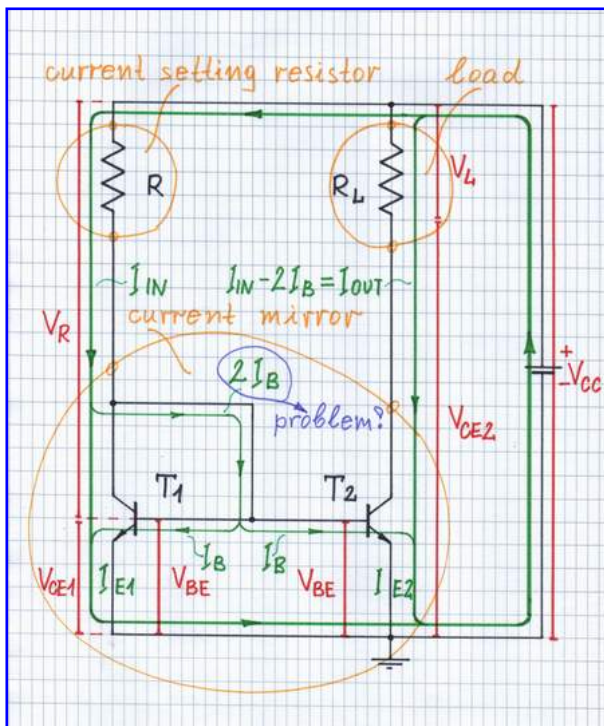 current setting resistor
load
R
R_L
V_L
I_IN
I_IN - 2I_B = I_OUT
current mirror
V_R
2I_B
problem?
+
-
V_CC
V_CE2
T1
T2
I_B
I_B
V_CE1
I_E1
V_BE
V_BE
I_E2